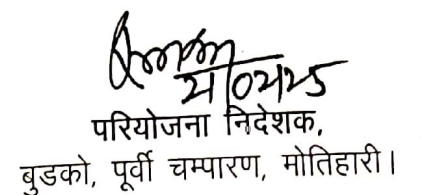 परियोजना निदेशक,
बुडको, पूर्वी चम्पारण, मोतिहारी।